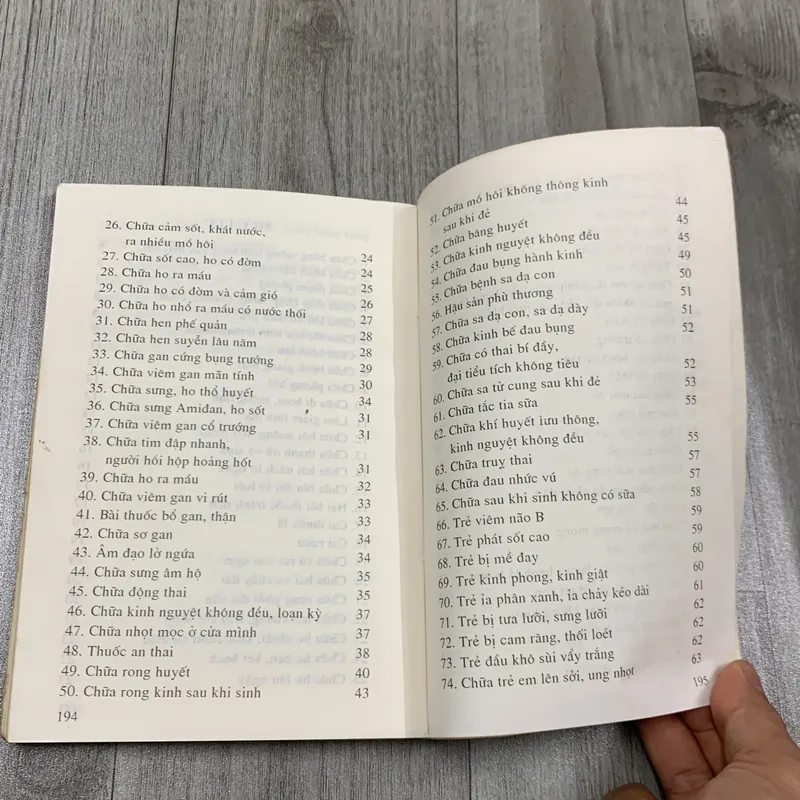 26. Chữa cảm sốt, khát nước,
ra nhiều mồ hôi 24
27. Chữa sốt cao, ho có đờm 24
28. Chữa ho ra máu 25
29. Chữa ho có đờm và cảm gió 26
30. Chữa ho nhổ ra máu có nước thối 27
31. Chữa hen phế quản 28
32. Chữa hen suyễn lâu năm 28
33. Chữa gan cứng bụng trướng 29
34. Chữa viêm gan mãn tính 30
35. Chữa sưng, ho thổ huyết 34
36. Chữa sưng Amiđan, ho sốt 31
37. Chữa viêm gan cổ trướng 31
38. Chữa tim đập nhanh,
người hồi hộp hoảng hốt 31
39. Chữa ho ra máu 32
40. Chữa viêm gan vi rút 33
41. Bài thuốc bổ gan, thận 33
42. Chữa sơ gan 34
43. Âm đạo lở ngứa 34
44. Chữa sưng âm hộ 35
45. Chữa động thai 35
46. Chữa kinh nguyệt không đều, loạn kỳ 37
47. Chữa nhọt mọc ở cửa mình 37
48. Thuốc an thai 38
49. Chữa rong huyết 40
50. Chữa rong kinh sau khi sinh 43
194
51. Chữa mồ hôi không thông kinh
sau khi đẻ 44
52. Chữa băng huyết 45
53. Chữa kinh nguyệt không đều 45
54. Chữa đau bụng hành kinh 49
55. Chữa bệnh sa dạ con 50
56. Hậu sản phù thương 51
57. Chữa sa dạ con, sa dạ dày 51
58. Chữa kinh bế đau bụng 52
59. Chữa có thai bí đẩy,
đại tiểu tích không tiêu 52
60. Chữa sa tử cung sau khi đẻ 53
61. Chữa tắc tia sữa 55
62. Chữa khí huyết lưu thông,
kinh nguyệt không đều 55
63. Chữa truỵ thai 57
64. Chữa đau nhức vú 57
65. Chữa sau khi sinh không có sữa 58
66. Trẻ viêm não B 59
67. Trẻ phát sốt cao 59
68. Trẻ bị mề đay 60
69. Trẻ kinh phong, kinh giật 60
70. Trẻ ỉa phân xanh, ỉa chảy kéo dài 61
71. Trẻ bị tưa lưỡi, sưng lưỡi 62
72. Trẻ bị cam răng, thối loét 62
73. Trẻ đầu khô sùi vẩy trắng 62
74. Chữa trẻ em lên sởi, ung nhọt 63
195